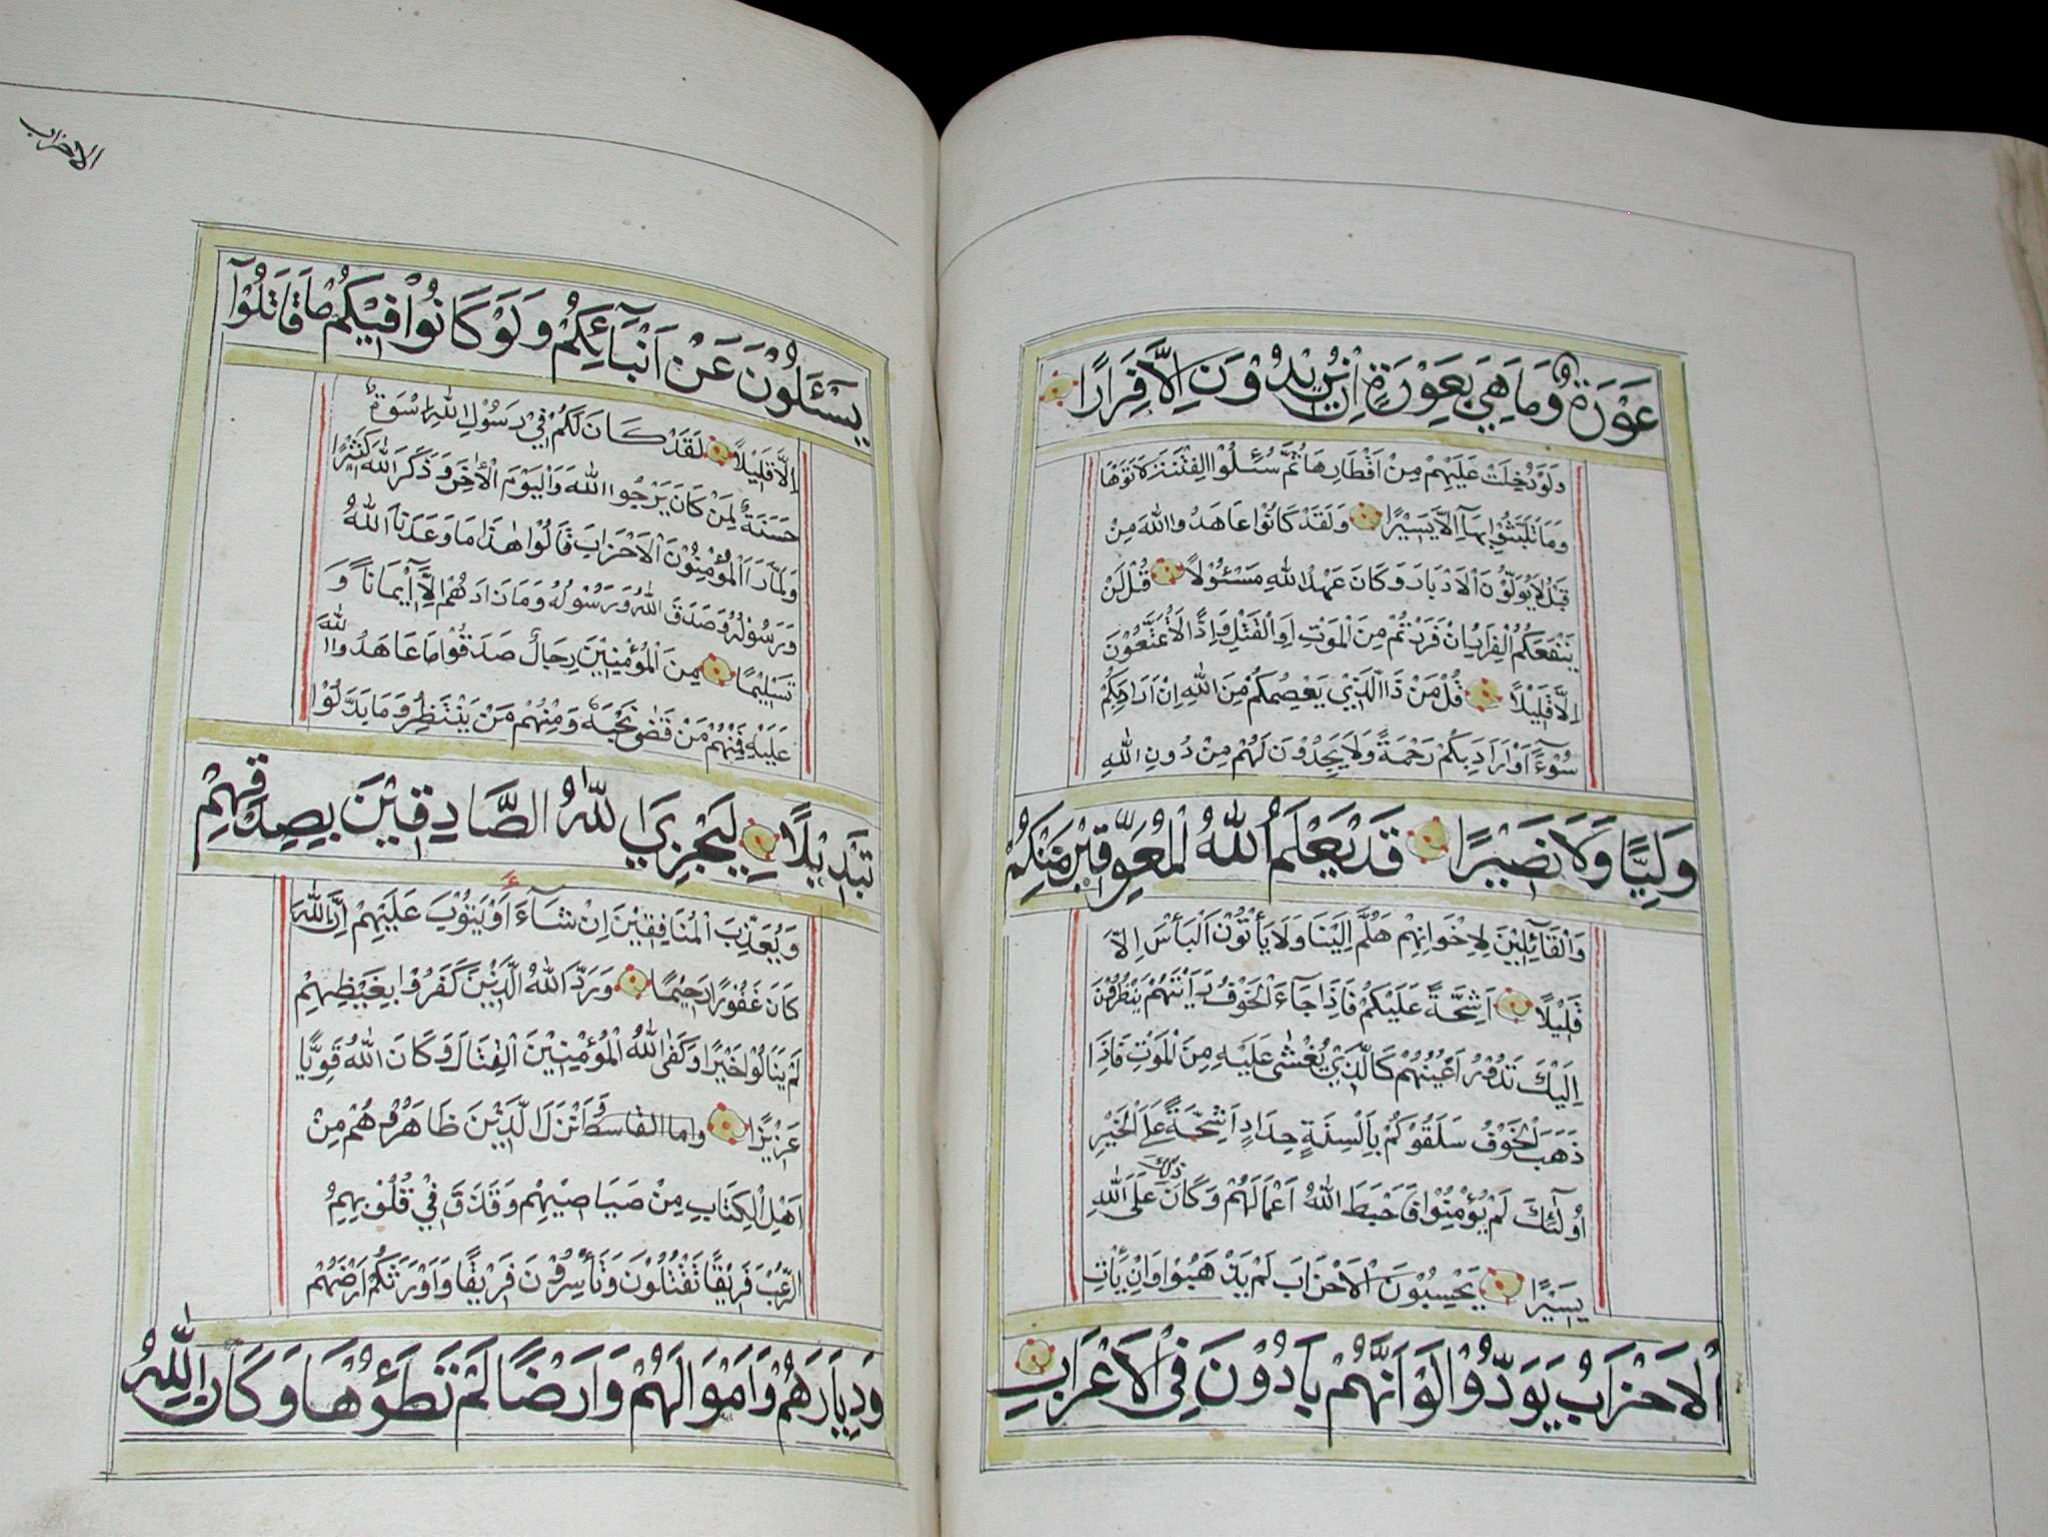 عَوْرَةٌ وَمَا هِيَ بِعَوْرَةٍ اِنْ يُرِيْدُوْنَ اِلَّا فِرَارًا
وَلَوْ دُخِلَتْ عَلَيْهِمْ مِنْ اَقْطَارِهَا ثُمَّ سُئِلُوا الْفِتْنَةَ لَاٰتَوْهَا
وَمَا تَلَبَّثُوْا بِهَآ اِلَّا يَسِيْرًا وَلَقَدْ كَانُوْا عَاهَدُوا اللّٰهَ مِنْ
قَبْلُ لَا يُوَلُّوْنَ الْاَدْبَارَ وَكَانَ عَهْدُ اللّٰهِ مَسْئُوْلًا قُلْ لَنْ
يَنْفَعَكُمُ الْفِرَارُ اِنْ فَرَرْتُمْ مِنَ الْمَوْتِ اَوِ الْقَتْلِ وَاِذًا لَا تُمَتَّعُوْنَ
اِلَّا قَلِيْلًا قُلْ مَنْ ذَا الَّذِيْ يَعْصِمُكُمْ مِنَ اللّٰهِ اِنْ اَرَادَ بِكُمْ
سُوْءًا اَوْ اَرَادَ بِكُمْ رَحْمَةً وَلَا يَجِدُوْنَ لَهُمْ مِنْ دُوْنِ اللّٰهِ
وَلِيًّا وَلَا نَصِيْرًا قَدْ يَعْلَمُ اللّٰهُ الْمُعَوِّقِيْنَ مِنْكُمْ
وَالْقَآئِلِيْنَ لِاِخْوَانِهِمْ هَلُمَّ اِلَيْنَا وَلَا يَأْتُوْنَ الْبَأْسَ اِلَّا
قَلِيْلًا اَشِحَّةً عَلَيْكُمْ فَاِذَا جَآءَ الْخَوْفُ رَاَيْتَهُمْ يَنْظُرُوْنَ
اِلَيْكَ تَدُوْرُ اَعْيُنُهُمْ كَالَّذِيْ يُغْشٰى عَلَيْهِ مِنَ الْمَوْتِ فَاِذَا
ذَهَبَ الْخَوْفُ سَلَقُوْكُمْ بِاَلْسِنَةٍ حِدَادٍ اَشِحَّةً عَلَى الْخَيْرِ
اُولٰٓئِكَ لَمْ يُؤْمِنُوْا فَاَحْبَطَ اللّٰهُ اَعْمَالَهُمْ وَكَانَ ذٰلِكَ عَلَى اللّٰهِ
يَسِيْرًا يَحْسِبُوْنَ الْاَحْزَابَ لَمْ يَذْهَبُوْا وَاِنْ يَأْتِ
الْاَحْزَابُ يَوَدُّوْا لَوْ اَنَّهُمْ بَادُوْنَ فِي الْاَعْرَابِ
الاحزاب
يَسْئَلُوْنَ عَنْ اَنْبَآئِكُمْ وَلَوْ كَانُوْا فِيْكُمْ مَا قَاتَلُوْآ
اِلَّا قَلِيْلًا لَقَدْ كَانَ لَكُمْ فِيْ رَسُوْلِ اللّٰهِ اُسْوَةٌ
حَسَنَةٌ لِمَنْ كَانَ يَرْجُوا اللّٰهَ وَالْيَوْمَ الْاٰخِرَ وَذَكَرَ اللّٰهَ كَثِيْرًا
وَلَمَّا رَاَ الْمُؤْمِنُوْنَ الْاَحْزَابَ قَالُوْا هٰذَا مَا وَعَدَنَا اللّٰهُ
وَرَسُوْلُهُ وَصَدَقَ اللّٰهُ وَرَسُوْلُهُ وَمَا زَادَهُمْ اِلَّآ اِيْمَانًا وَ
تَسْلِيْمًا مِنَ الْمُؤْمِنِيْنَ رِجَالٌ صَدَقُوْا مَا عَاهَدُوا اللّٰهَ
عَلَيْهِ فَمِنْهُمْ مَنْ قَضٰى نَحْبَهُ وَمِنْهُمْ مَنْ يَنْتَظِرُ وَمَا بَدَّلُوْا
تَبْدِيْلًا لِيَجْزِيَ اللّٰهُ الصَّادِقِيْنَ بِصِدْقِهِمْ
وَيُعَذِّبَ الْمُنَافِقِيْنَ اِنْ شَآءَ اَوْ يَتُوْبَ عَلَيْهِمْ اِنَّ اللّٰهَ
كَانَ غَفُوْرًا رَحِيْمًا وَرَدَّ اللّٰهُ الَّذِيْنَ كَفَرُوْا بِغَيْظِهِمْ
لَمْ يَنَالُوْا خَيْرًا وَكَفَى اللّٰهُ الْمُؤْمِنِيْنَ الْقِتَالَ وَكَانَ اللّٰهُ قَوِيًّا
عَزِيْزًا واما القاسط وَاَنْزَلَ الَّذِيْنَ ظَاهَرُوْهُمْ مِنْ
اَهْلِ الْكِتَابِ مِنْ صَيَاصِيْهِمْ وَقَذَفَ فِيْ قُلُوْبِهِمُ
الرُّعْبَ فَرِيْقًا تَقْتُلُوْنَ وَتَأْسِرُوْنَ فَرِيْقًا وَاَوْرَثَكُمْ اَرْضَهُمْ
وَدِيَارَهُمْ وَاَمْوَالَهُمْ وَاَرْضًا لَمْ تَطَئُوْهَا وَكَانَ اللّٰهُ